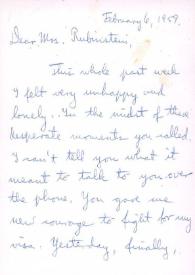 February 6, 1959.
Dear Mrs. Rubinstein,
This whole past week
I felt very unhappy and
lonely... In the midst of these
desperate moments you called.
I can't tell you what it
meant to talk to you over
the phone. You gave me
new courage to fight for my
visa. Yesterday, finally,